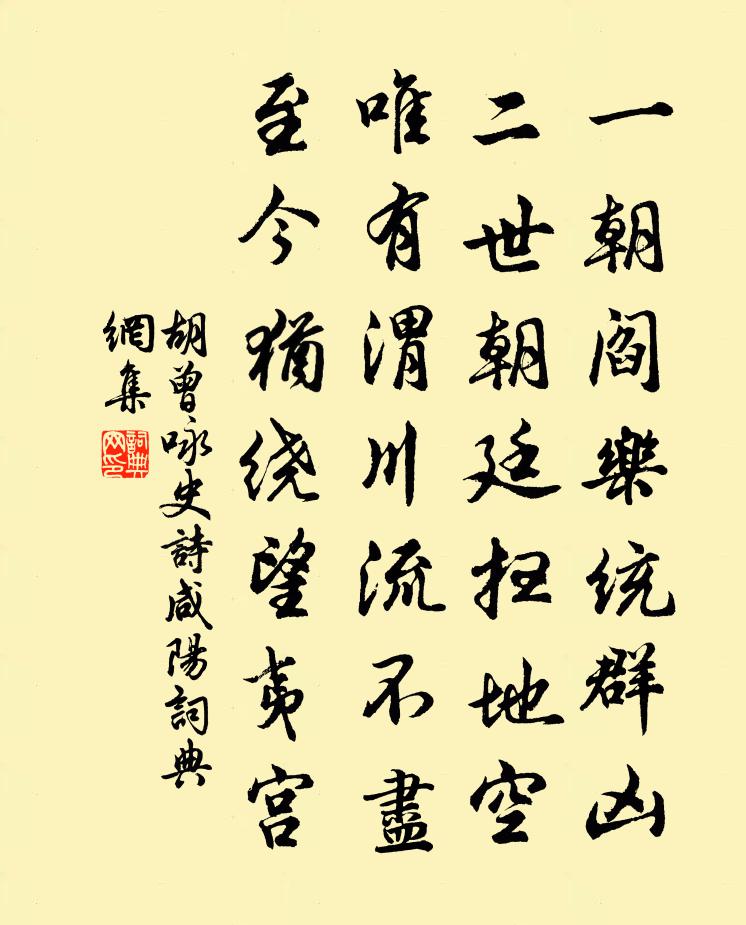 一朝閻樂統群凶
二世朝廷扫地空
唯有渭川流不盡
至今猶绕望夷宫
胡曾咏史詩咸陽詞典
網集
詞典
网印